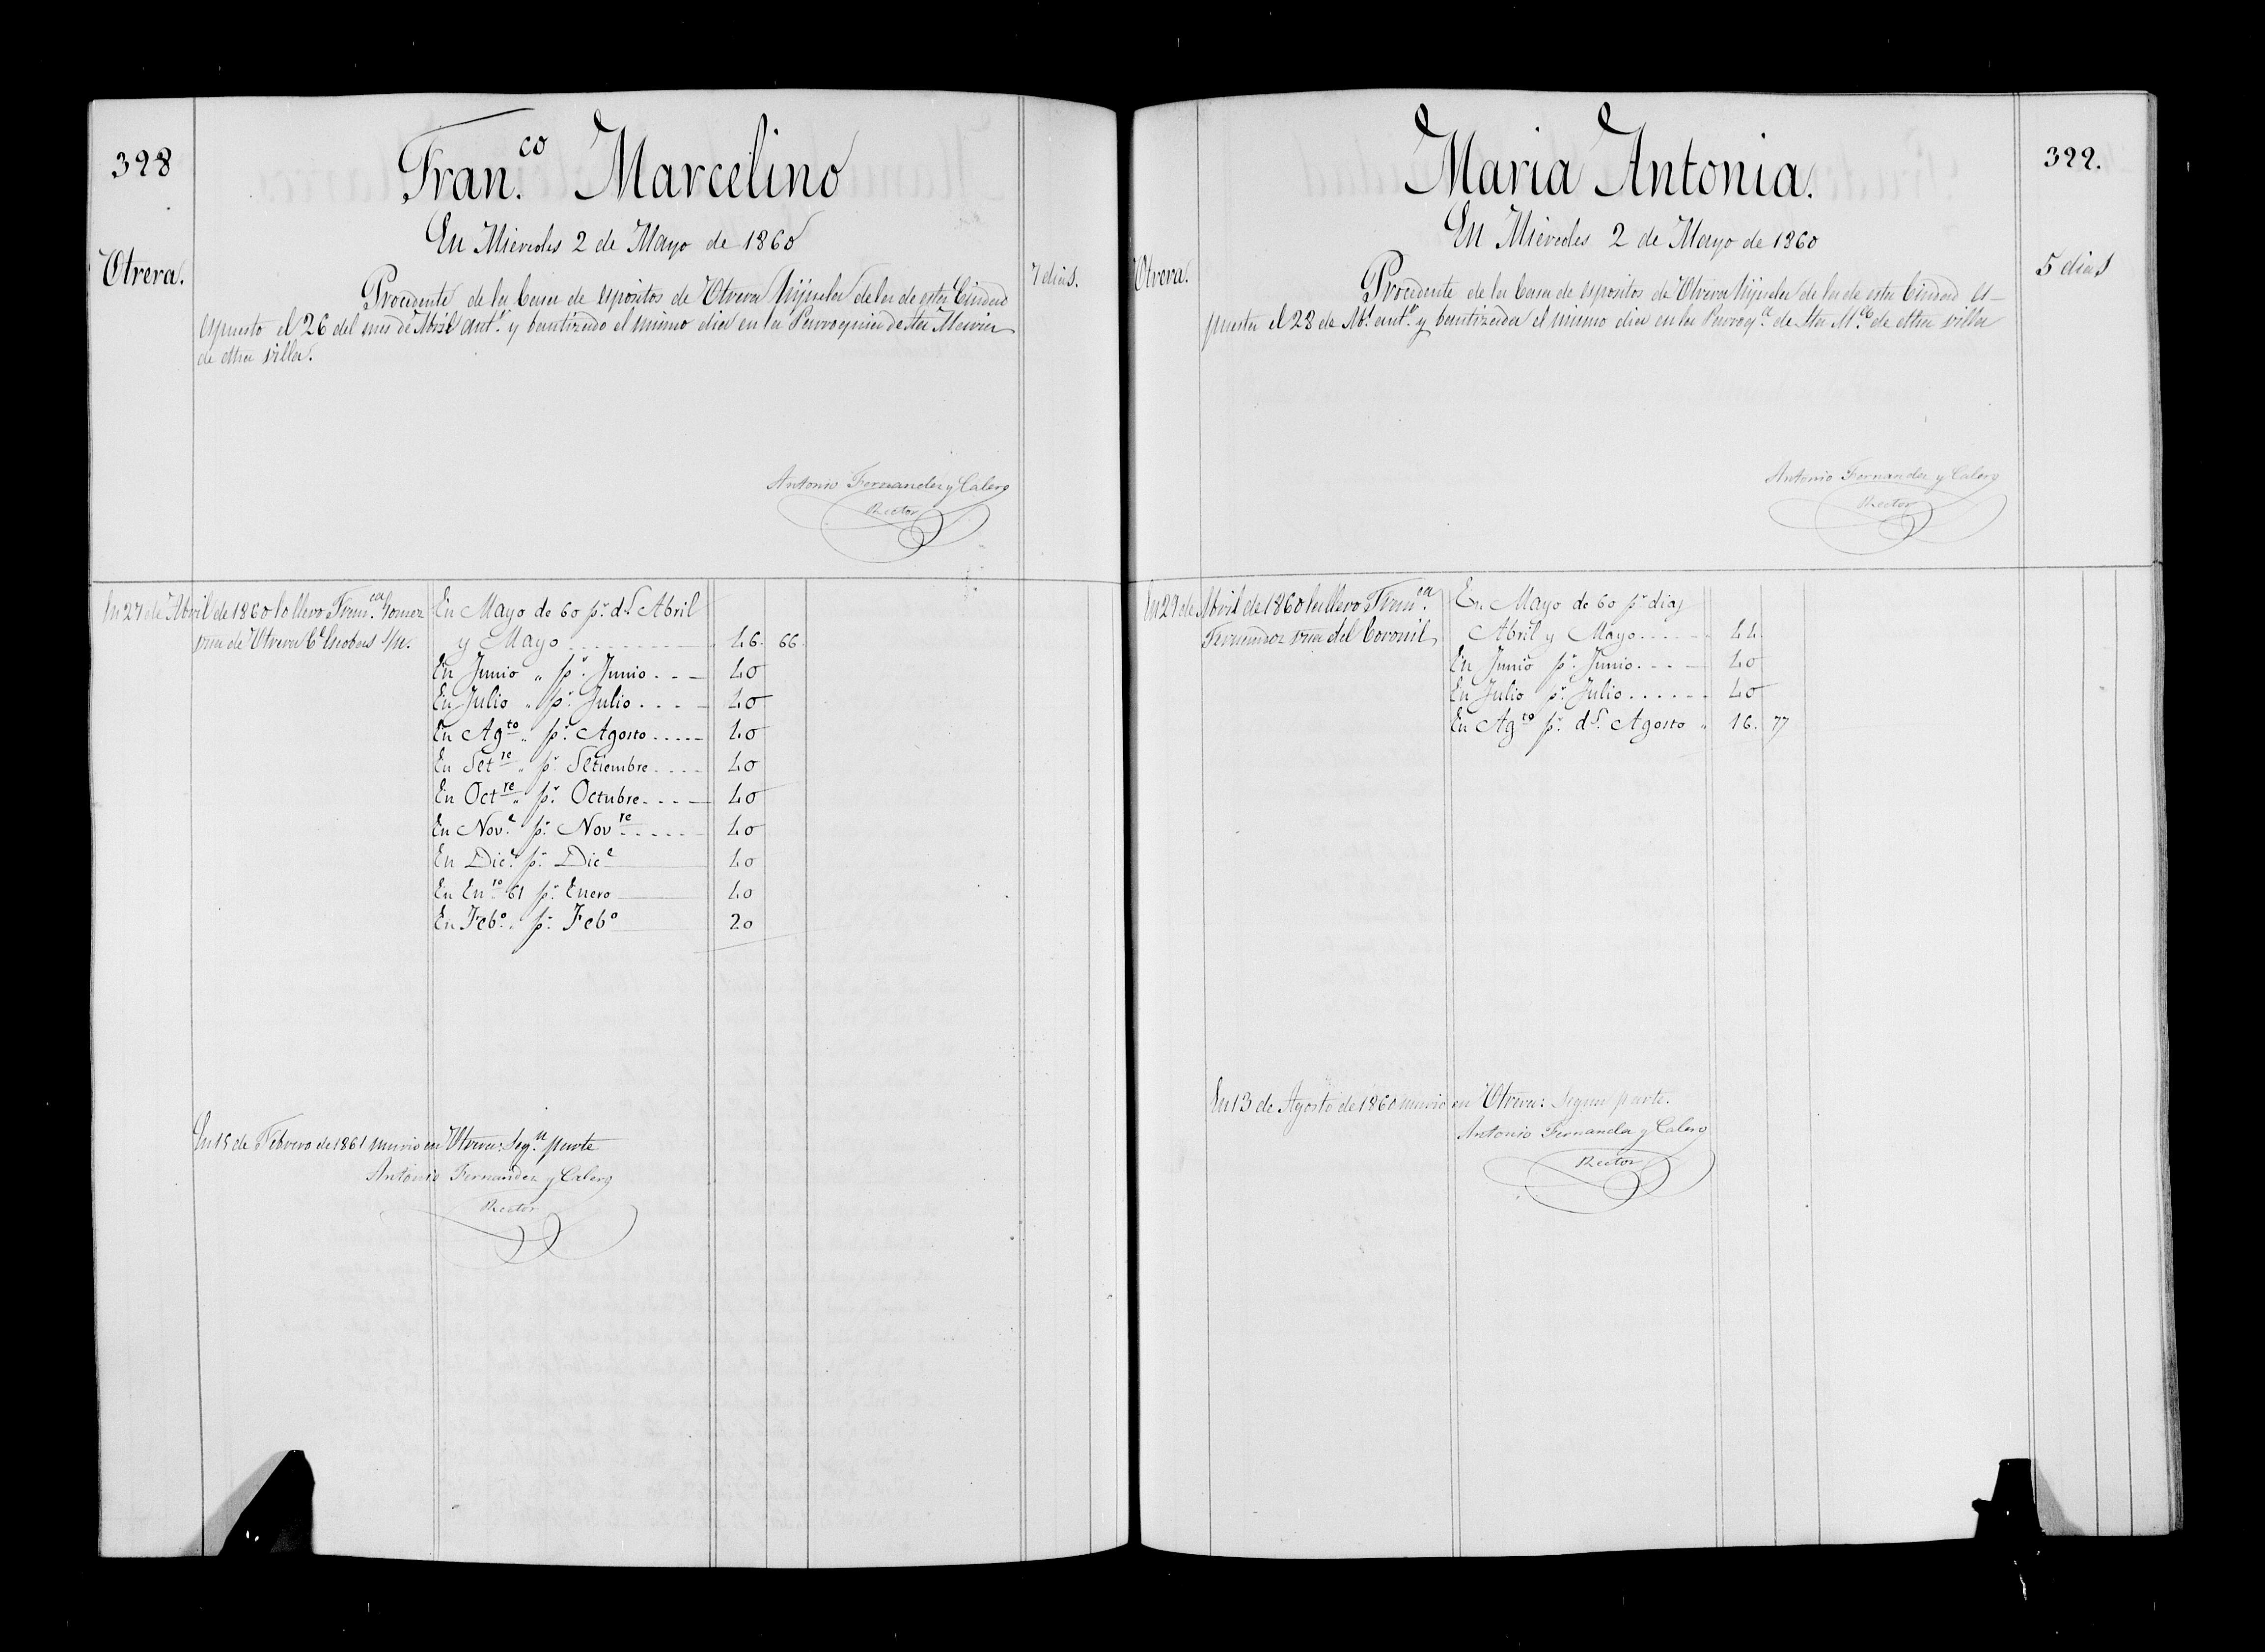 328
Utrera.
Fran.co Marcelino
En Miercoles 2 de Mayo de 1860
7 dias.
Procedente de la Casa de espositos de Utrera hijuela de la de esta Ciudad
espuesto el 26 del mes de Abril ant.r y bautizado el mismo dia en la Parroquia de Sta Maria
de dha villa.
Antonio Fernandez y Calero
Rector
En 27 de Abril de 1860 lo llevo Fran.ca Gomez
vna de Utrera C.e
En Mayo de 60 p.r d.s Abril
y Mayo 46. 66.
En Junio " p.r Junio 40
En Julio " p.r Julio 40
En Ag.to " p.r Agosto 40
En Set.re " p.r Setiembre 40
En Oct.re " p.r Octubre 40
En Nov.e p.r Nov.re 40
En Dic.e p.r Dic.e 40
En En.ro 61 p.r Enero 40
En Feb.o " p.r Feb.o 20
En 15 de Febrero de 1861 murio en Utrera: Seg.n parte
Antonio Fernandez y Calero
Rector
Utrera.
Maria Antonia.
322.
En Miercoles 2 de Mayo de 1860
5 dias
Procedente de la Casa de espositos de Utrera hijuela de la de esta Ciudad es-
puesta el 28 de Ab.l ant.r y bautizada el mismo dia en la Parroq.a de Sta M.a de dha villa
Antonio Fernandez y Calero
Rector
En 29 de Abril de 1860 la llevo Fran.ca
Fernandez vna del Coronil
En Mayo de 60 p.r dias
Abril y Mayo 44
En Junio p.r Junio 40
En Julio p.r Julio 40
En Ag.to p.r d.s Agosto " 16. 77
En 13 de Agosto de 1860 murio en Utrera: Segun parte.
Antonio Fernandez y Calero
Rector